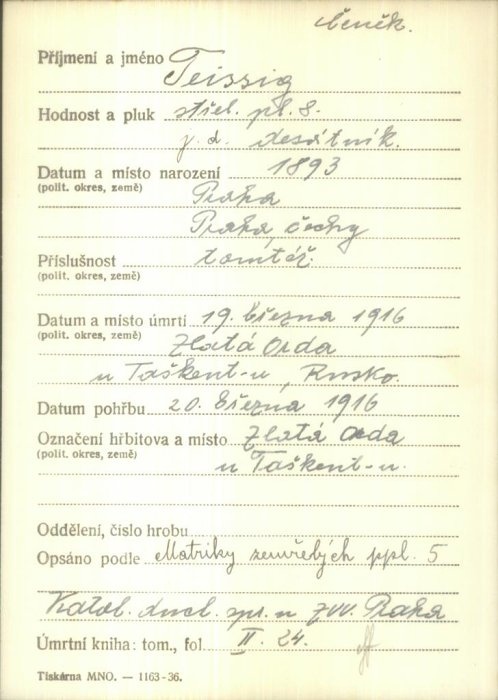 Čeněk.
Příjmení a jméno Teissig
Hodnost a pluk střel. pl. 8.
j. d. desátník.
Datum a místo narození 1893
(polit. okres, země) Praha
Praha, čechy
Příslušnost tomtéž.
(polit. okres, země)
Datum a místo úmrtí 19. března 1916
(polit. okres, země) Zlatá Orda
u Taškent-u, Rusko.
Datum pohřbu 20. března 1916
Označení hřbitova a místo Zlatá Orda
(polit. okres, země) u Taškent-u.
Oddělení, číslo hrobu
Opsáno podle Matriky zemřelých ppl. 5
Katol. duch. spr. u ZVV. Praha
Úmrtní kniha: tom., fol. II. 24.
Tiskárna MNO. — 1163-36.